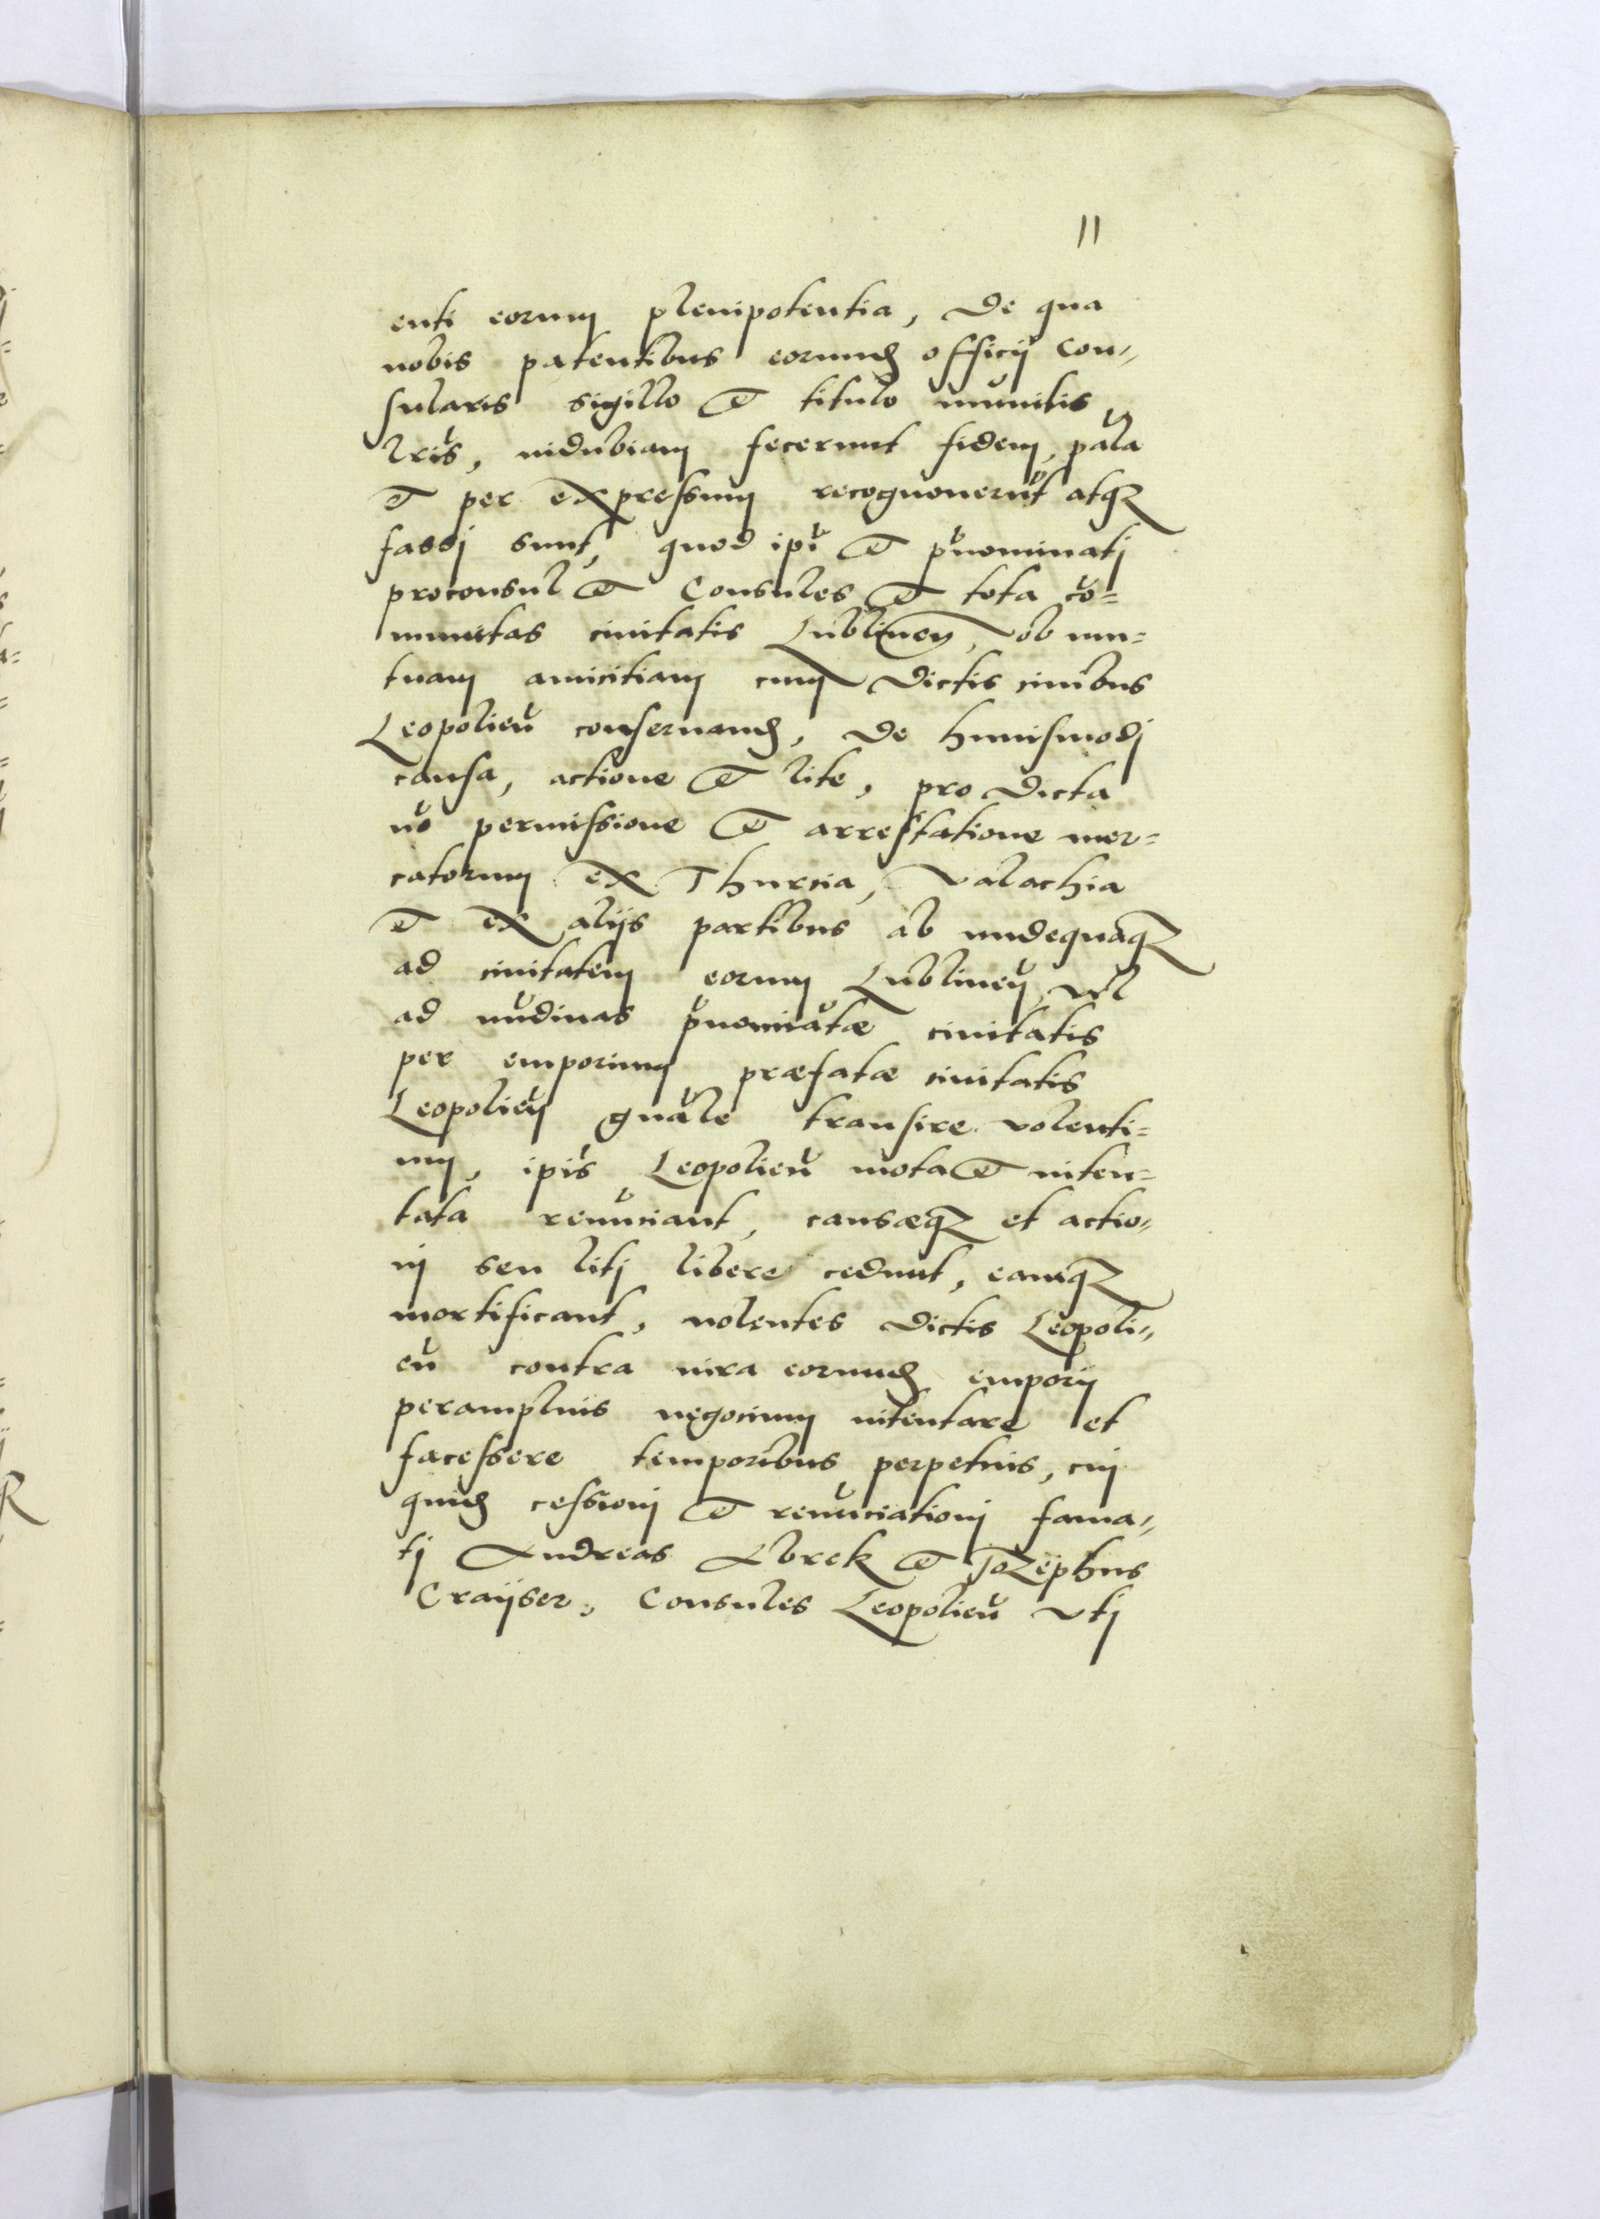 11
enti eorum plenipotentia, de qua
nobis patentibus eorund officij Con„
sularis sigillo et titulo mŭnitis
lris, indubiam fecerunt fidem, pala
et per expressum recognouerūt atqȝ
fassj sunt, quod ipi et pnominatj
proconsul et Consules et tota cō=
munitas ciuitatis Lublineñ, ob mu=
tuam amicitiam cum dictis ciuibus
Leopolieñ conseruand, de huiusmodj
causa, actione et lite, pro dicta
nō permissione et arrestatione mer=
catorum ex Thurcia, Valachia
et ex alijs partibus ab undequaqȝ
ad ciuitatem eorum Lublineñ, vel
ad nūdinas pnominatæ ciuitatis
per emporium præfatæ ciuitatis
Leopolieñ gnale transire volenti=
um, ipis Leopolieñ mota et inten=
tata renūciant, causæqȝ et actio„
nj seu litj libere cedunt, eamqȝ
mortificant, nolentes dictis Leopoli„
eñ contra iura eorund emporij
peramplius negocium intentare et
facessere temporibus perpetuis, cuj
quid cessionj et renūciationj fama„
tj Andreas Abrek et Jozephus
Crayser, Consules Leopolieñ vtj